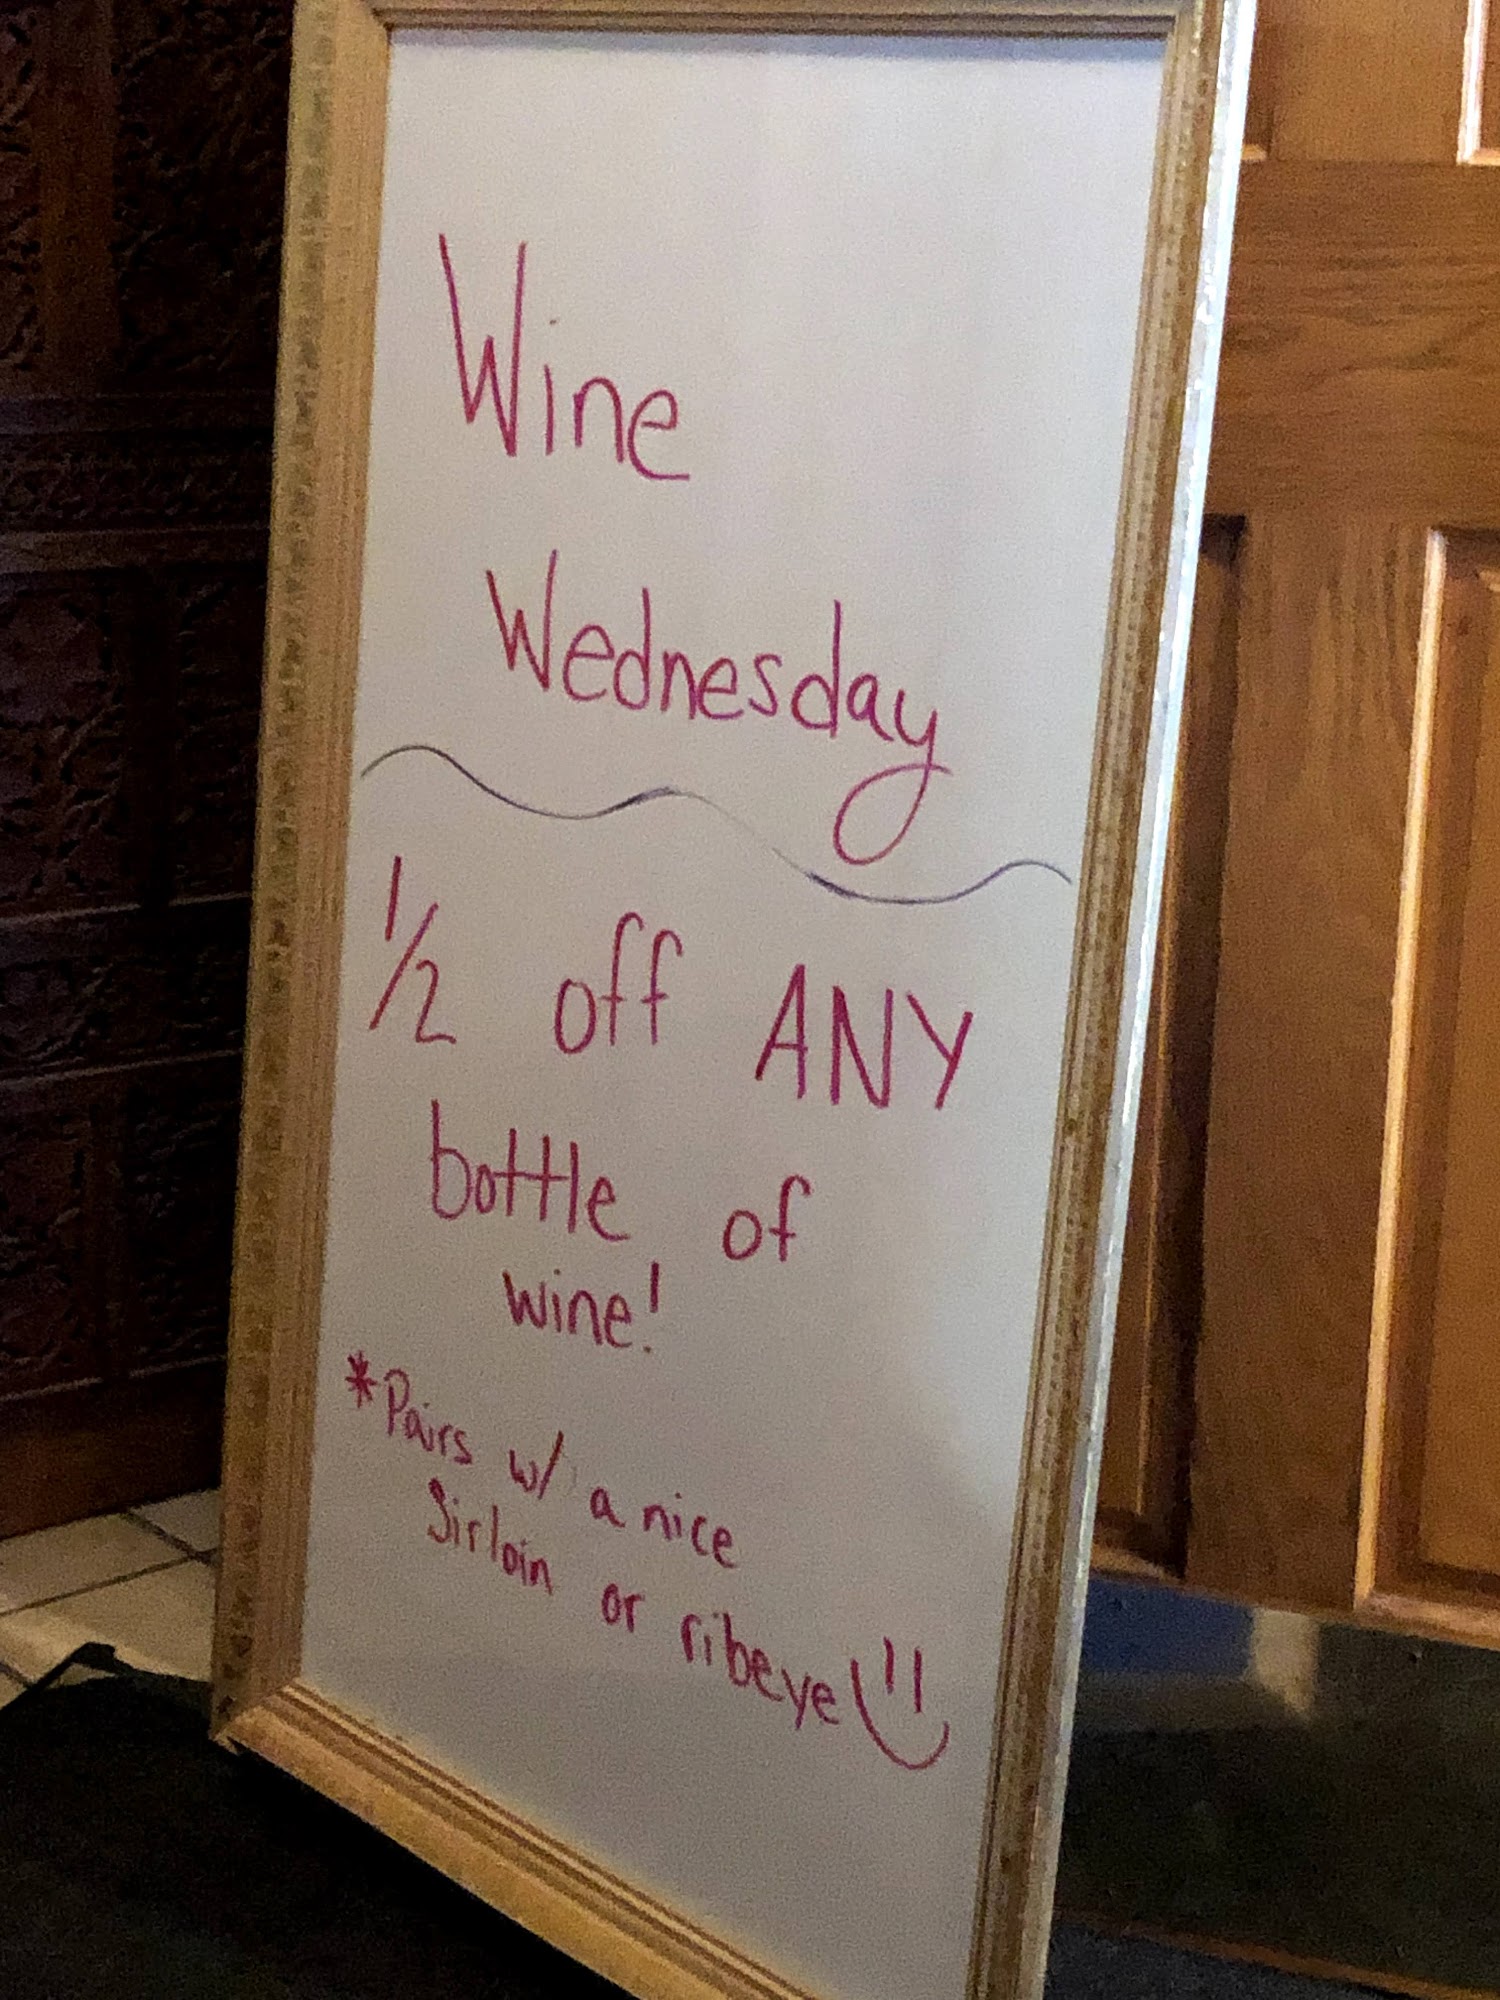 Wine
Wednesday
1/2 off ANY
bottle of
wine!
*Pairs w/ a nice
Sirloin or ribeye